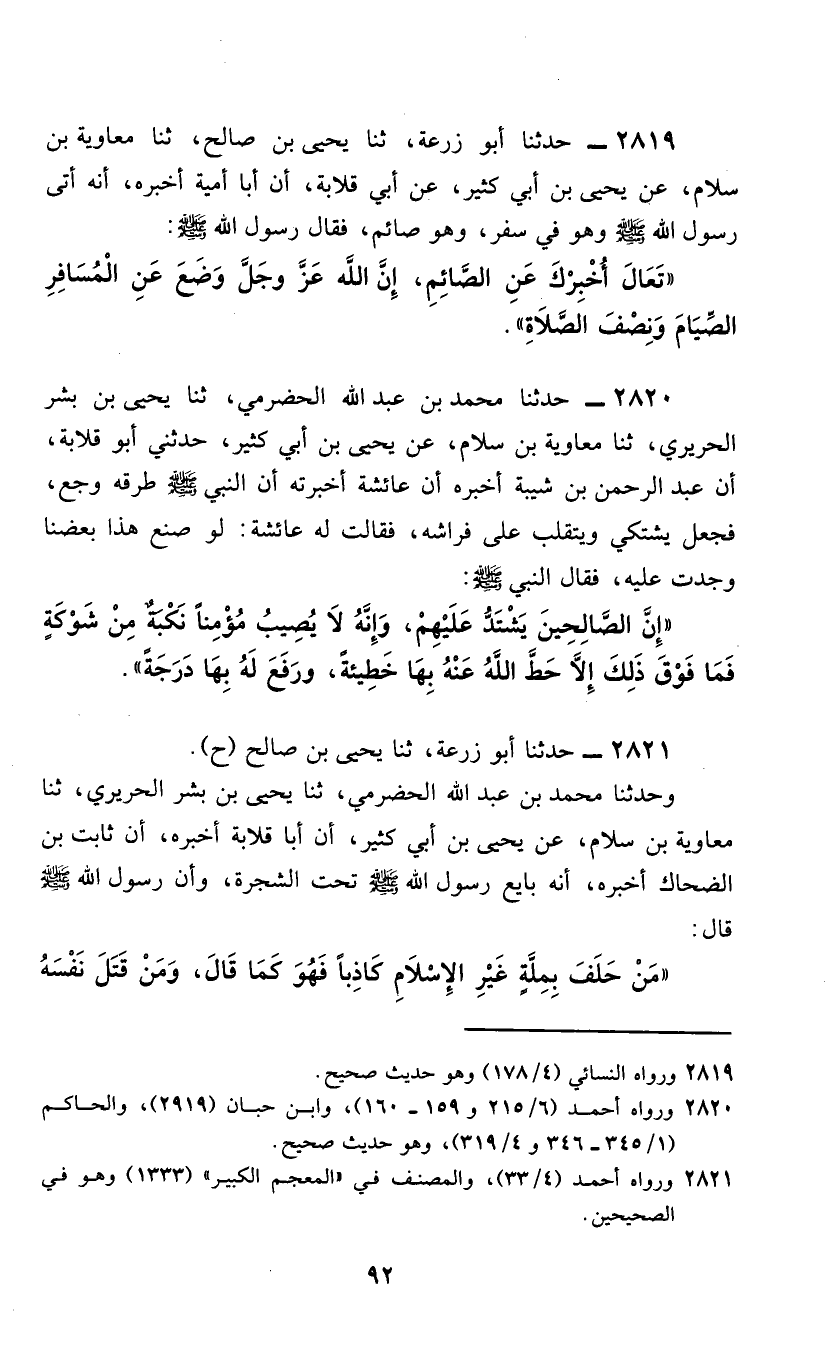 ٢٨١٩ ــ حدثنا أبو زرعة، ثنا يحيى بن صالح، ثنا معاوية بن
سلام، عن يحيى بن أبي كثير، عن أبي قلابة، أن أبا أمية أخبره، أنه أتى
رسول الله ﷺ وهو في سفر، وهو صائم، فقال رسول الله ﷺ:
«تَعَالَ أُخْبِرْكَ عَنِ الصَّائِمِ، إِنَّ اللَّه عَزَّ وجَلَّ وَضَعَ عَنِ الْمُسَافِرِ
الصِّيَامَ وَنِصْفَ الصَّلَاةِ».
٢٨٢٠ ــ حدثنا محمد بن عبد الله الحضرمي، ثنا يحيى بن بشر
الحريري، ثنا معاوية بن سلام، عن يحيى بن أبي كثير، حدثني أبو قلابة،
أن عبد الرحمن بن شيبة أخبره أن عائشة أخبرته أن النبي ﷺ طرقه وجع،
فجعل يشتكي ويتقلب على فراشه، فقالت له عائشة: لو صنع هذا بعضنا
وجدت عليه، فقال النبي ﷺ:
«إِنَّ الصَّالِحِينَ يَشْتَدُّ عَلَيْهِمْ، وَإِنَّهُ لَا يُصِيبُ مُؤْمِناً نَكْبَةٌ مِنْ شَوْكَةٍ
فَمَا فَوْقَ ذَلِكَ إِلَّا حَطَّ اللَّهُ عَنْهُ بِهَا خَطِيئةً، ورَفَعَ لَهُ بِهَا دَرَجَةً».
٢٨٢١ ــ حدثنا أبو زرعة، ثنا يحيى بن صالح (ح).
وحدثنا محمد بن عبد الله الحضرمي، ثنا يحيى بن بشر الحريري، ثنا
معاوية بن سلام، عن يحيى بن أبي كثير، أن أبا قلابة أخبره، أن ثابت بن
الضحاك أخبره، أنه بايع رسول الله ﷺ تحت الشجرة، وأن رسول الله ﷺ
قال:
«مَنْ حَلَفَ بِمِلَّةٍ غَيْرِ الإِسْلَامِ كَاذِباً فَهُوَ كَمَا قَالَ، وَمَنْ قَتَلَ نَفْسَهُ
٢٨١٩ ورواه النسائي (٤/ ١٧٨) وهو حديث صحيح.
٢٨٢٠ ورواه أحمد (٦/ ٢١٥ و ١٥٩ ــ ١٦٠)، وابن حبان (٢٩١٩)، والحاكم
(١/ ٣٤٥ ــ ٣٤٦ و ٤/ ٣١٩)، وهو حديث صحيح.
٢٨٢١ ورواه أحمد (٤/ ٣٣)، والمصنف في «المعجم الكبير» (١٣٣٣) وهو في
الصحيحين.
٩٢